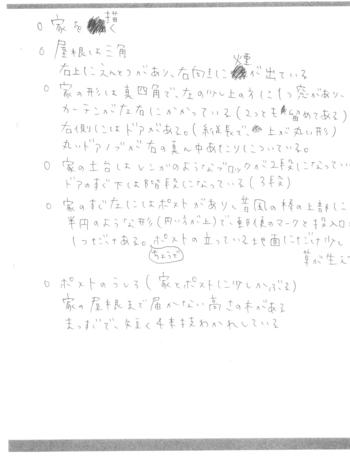 ○ 家を描く
○ 屋根は三角
右上にえんとつがあり、右向きに煙が出ている
○ 家の形は真四角で、左の少し上の方に1つ窓があり、
カーテンが左右にかかっている(2つとも留めてある)
右側にはドアがある。(縦長で、上が丸い形)
丸いドアノブが右の真ん中あたりについている。
○ 家の土台はレンガのようなブロックが2段になってい
ドアのすぐ下は階段になっている(3段)
○ 家のすぐ左にはポストがあり、昔風の棒の上部に
半円のような形(円い方が上)で、郵便のマークと投入口
1つだけある。ポストの立っている地面にだけ少し
ちょうど
草が生え
○ ポストのうしろ(家とポストに少しかぶる)
家の屋根まで届かない高さの木がある
まっすぐで、短く4本枝わかれしている